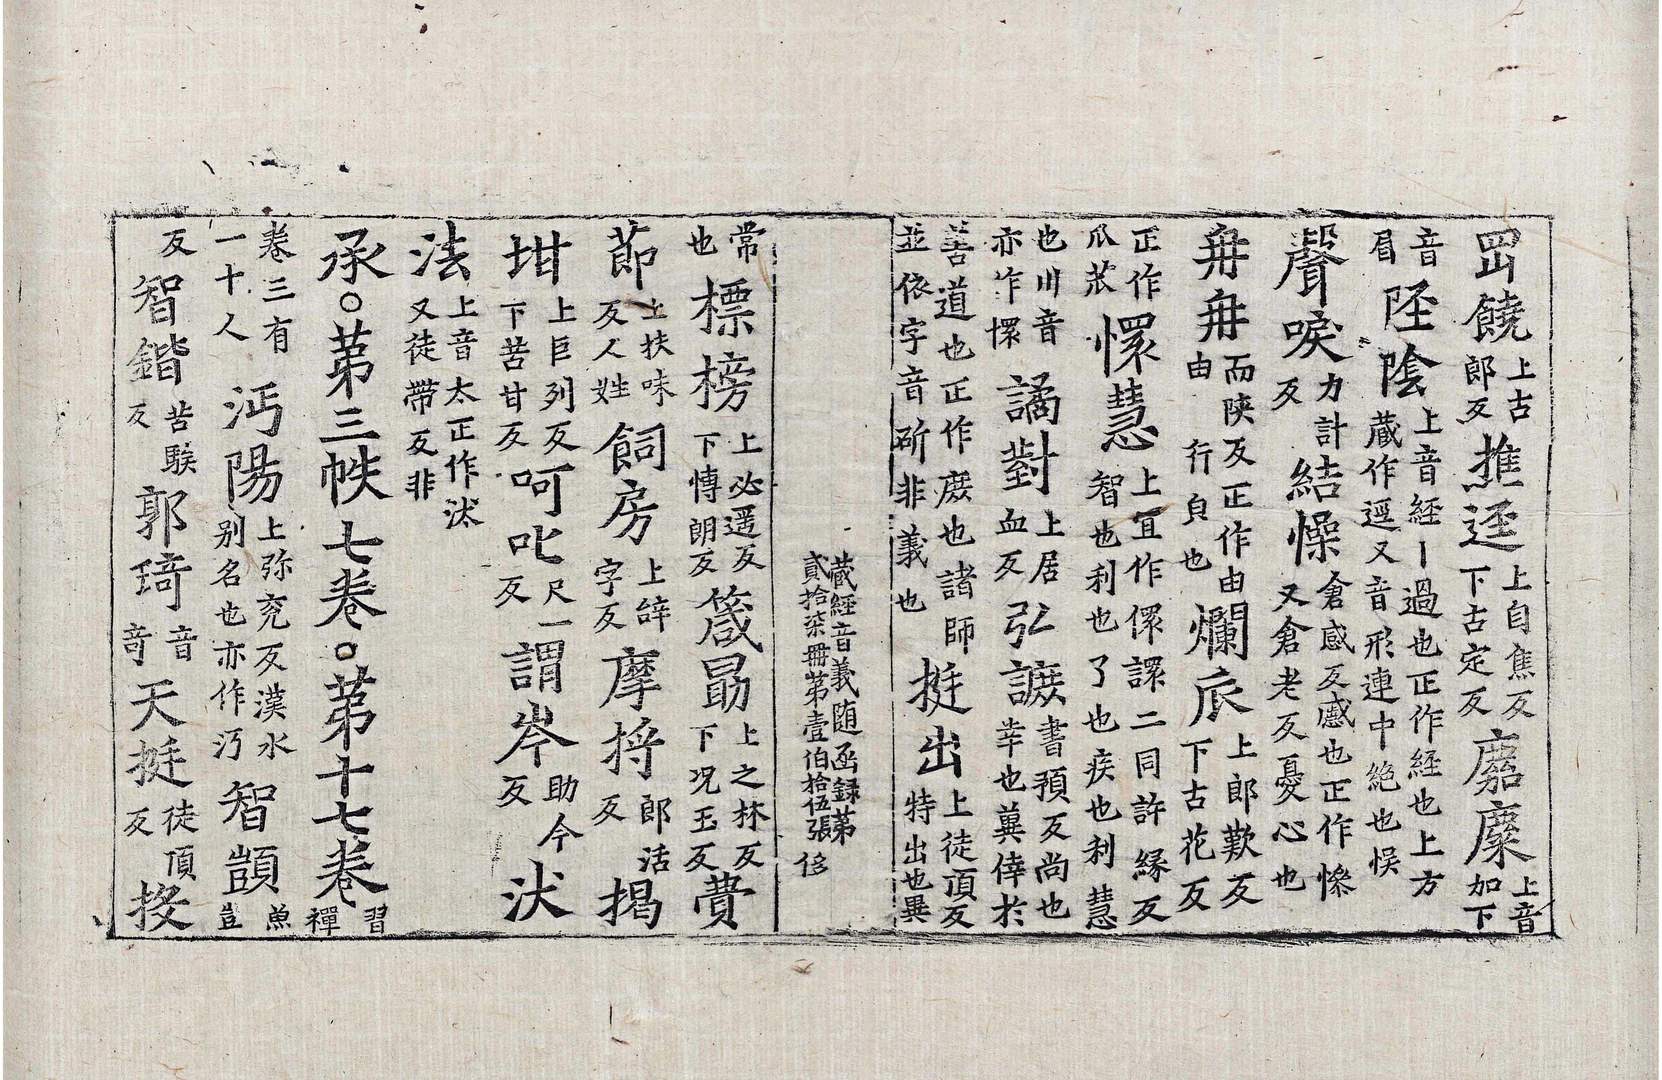 罡饒上古郎反推逕上自焦反下古定反䴥麋上音加下
音眉陘陰上音經丨過也正作経也上方藏作逕又音形連中絶也悮
聲唳力計反結懆倉感反慼也正作㦧又倉老反憂心也
冄冄而陝反正作由由行皃也爛㡳上郎歎反下古花反
正作瓜㽿懁慧上冝作儇譞二同許縁反智也利也了也疾也利慧
也川音亦作懁譎對上居血反弘讌書預反尚也幸也冀倖於
善道也正作庶也諸師並依字音斫非義也挺出上徒頂反特出也異
藏經音義随函録第貳拾柒冊第壹伯拾伍張侈
常也標榜上必遥反下愽朗反箴勗上之林反下况玉反費
莭上扶味反人姓飼房上辝字反摩捋郎活反揭
坩上巨列反下苦甘反呵叱尺一反謂岑助今反汏
法上音太正作汰又徒帶反非
承○第三帙七卷○第十七卷習禪
卷三有一十人沔陽上弥兖反漢水别名也亦作沔智顗魚豈
反智鍇苦駭反郭琦音奇天挺徒頂反挍